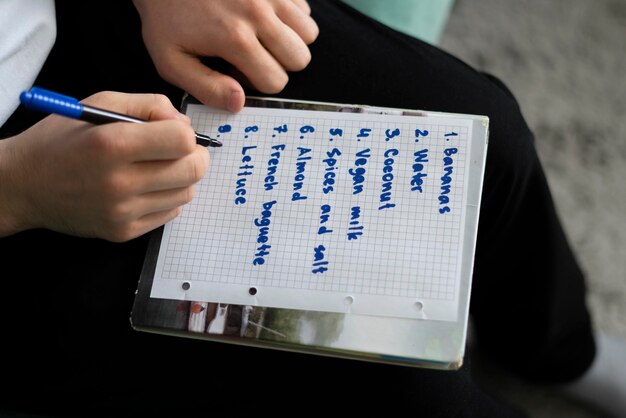 1. Bananas
2. Water
3. Coconut
4. Vegan milk
5. Spices and salt
6. Almond
7. French baguette
8. Lettuce
9